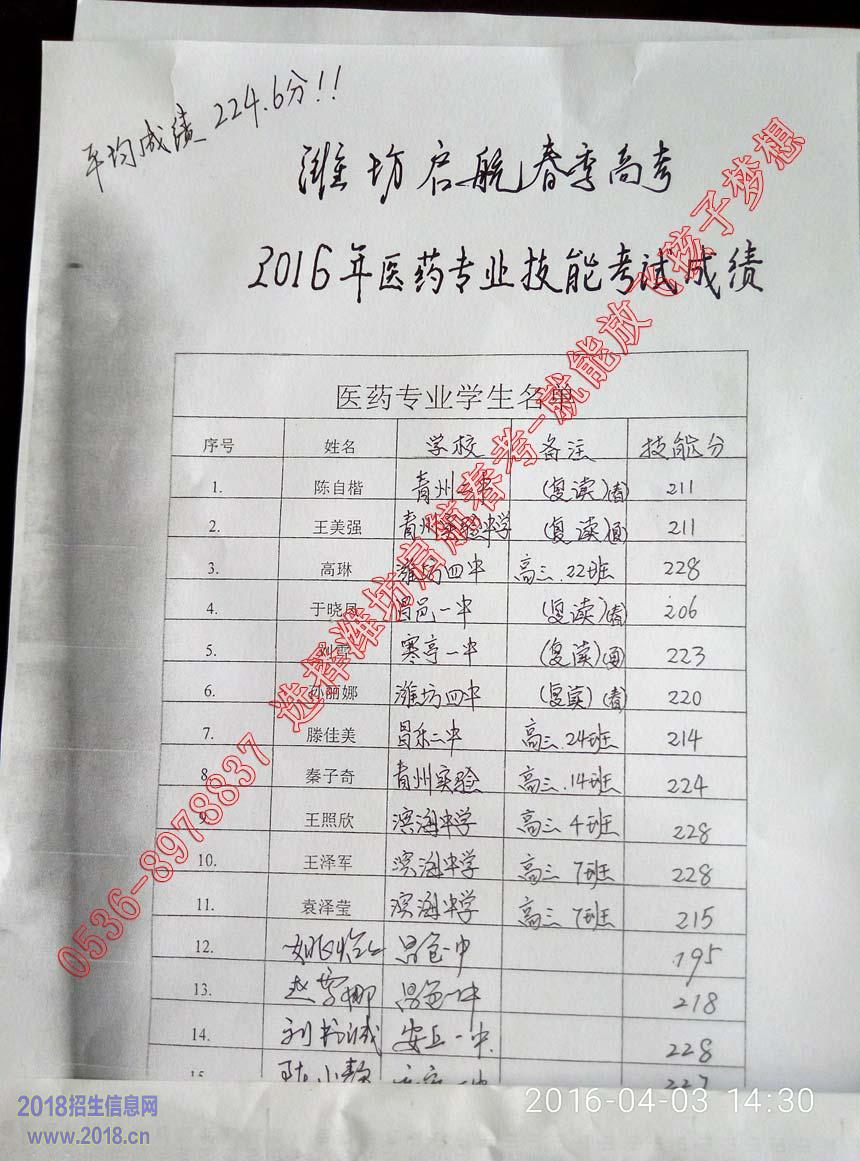 平均成绩 224.6分!!
潍坊启航春季高考
2016年医药专业技能考试成绩
医药专业学生名单
序号 姓名 学校 备注 技能分
1. 陈自楷 青州一中 (复读)(春) 211
2. 王美强 青州实验中学 (复读) 211
3. 高琳 潍坊四中 高三.22班 228
4. 于晓凤 昌邑一中 (复读)(春) 206
5. 刘雪 寒亭一中 (复读) 223
6. 孙丽娜 潍坊四中 (复读)(春) 220
7. 滕佳美 昌乐二中 高三.24班 214
8. 秦子奇 青州实验 高三.14班 224
9. 王照欣 滨海中学 高三4班 228
10. 王泽军 滨海中学 高三7班 228
11. 袁泽莹 滨海中学 高三7班 215
12. 昌邑一中 195
13. 赵雪娜 昌邑一中 218
14. 安丘一中. 228
15 227
0536-8978837 选择潍坊启航春考-就能放飞孩子梦想
2016-04-03 14:30
2018招生信息网
www.2018.cn